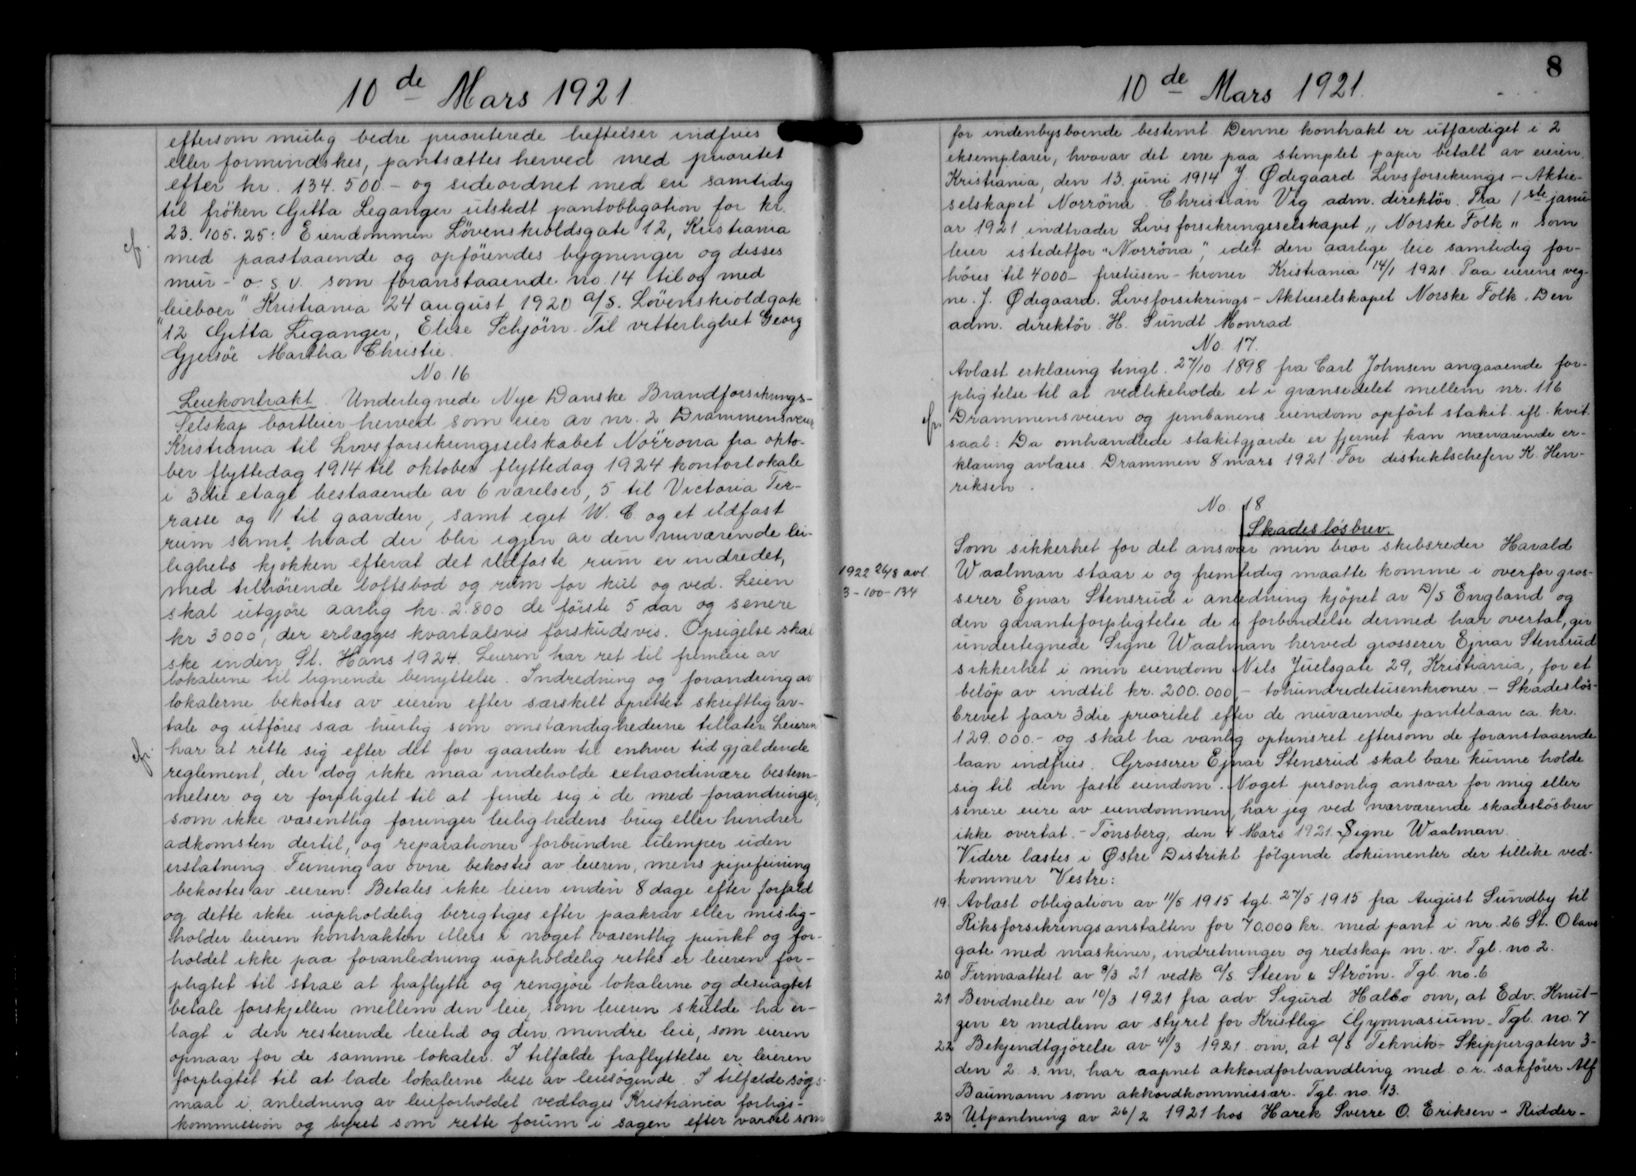 10de Mars 1921
eftersom mulig bedre prioriterede heftelser indfries
eller formindskes, pantsættes herved med prioritet
efter kr. 134.500 - og sideordnet med en samtidig
til fröken Gitta Leganger utstedt pantobligation for kr.
23.105.25: Eiendommen Lövenskioldsgate 12, Kristiania
cfr. med paastaaende og opförendes bygninger og disses
mur - o. s. v. som foranstaaende no. 14 til og med
leieboer" Kristiania 24 august 1920 a/s. Lövenskioldgate
"12 Gitta Leganger, Elise Schjörn. Til vitterlighet Georg
Gjersöe Martha Christie.
No. 16
Leiekontrakt. Undertegnede Nye Danske Brandforsikrings-
Selskap bortleier herved som eier av nr. 2 Drammensveien
Kristiania til Livsforsikringsselskabet Norröna fra okto-
ber flyttedag 1914 til oktober flyttedag 1924 kontorlokale
i 3die etage bestaaende av 6 værelser, 5 til Victoria Ter-
rasse og 1 til gaarden, samt eget W. C. og et ildfast
rum samt hvad der blir igjen av den nuværende lei-
lighets kjøkken efterat det ildfaste rum er indredet,
med tilhörende loftsbod og rum for kul og ved. Leien
skal utgjøre aarlig kr. 2.800 de förste 5 aar og senere
kr 3000, der erlægges kvartalsvis forskudsvis. Opsigelse skal
ske inden St. Hans 1924. Leieren har ret til fremleie av
lokalerne til lignende benyttelse. Indredning og forandring av
lokalerne bekostes av eieren efter særskilt oprettet skriftlig av-
tale og utföres saa hurtig som omstændighederne tillater. Leieren
cfr. har at rette sig efter det for gaarden til enhver tid gjældende
reglement, der dog ikke maa indeholde extraordinære bestem-
melser og er forpligtet til at finde sig i de med forandringer,
som ikke væsentlig forringer leilighedens brug eller hindrer
adkomsten dertil, og reparationer forbundne ulemper uden
erstatning. Feining av ovne bekostes av leieren, mens pipefeining
bekostes av eieren. Betales ikke leien inden 8 dage efter forfald
og dette ikke uopholdelig berigtiges efter paakrav eller mislig-
holder leieren kontrakten ellers i noget væsentlig punkt og for-
holdet ikke paa foranledning uopholdelig rettes er leieren for-
pligtet til strax at fraflytte og rengjøre lokalerne og desuagtet
betale forskjellen mellem den leie, som leieren skulde ha er-
lagt i den resterende leietid og den mindre leie, som eieren
opnaar for de samme lokaler. I tilfælde fraflyttelse er leieren
forpligtet til at lade lokalerne bese av leiesögende. I tilfælde søgs-
maal i anledning av leieforholdet vedtages Kristiania forligs-
kommission og byret som rette forum i sagen efter varsel som
8
10de Mars 1921.
for indenbysboende bestemt. Denne kontrakt er utfærdiget i 2
eksemplarer, hvorav det ene paa stemplet papir betalt av eieren.
Kristiania, den 13. juni 1914 J. Ødegaard Livsforsikrings - Aktie-
selskapet Norröna. Christian Vig adm. direktör. Fra 1ste janu-
ar 1921 indtræder Livsforsikringsselskapet „Norske Folk„ som
leier istedetfor „Norröna", idet den aarlige leie samtidig for-
höies til 4000 - firetusen - kroner Kristiania 14/1 1921. Paa eierens veg-
ne. J. Ødegaard. Livsforsikrings - Aktieselskapet Norske Folk. Den
adm. direktör. H. Sundt Monrad
No. 17.
Avlæst erklæring tingl. 27/10 1898 fra Carl Johnsen angaaende for-
pligtelse til at vedlikeholde et i grænsedelet mellem nr. 116
cfr. Drammensveien og jernbanens eiendom opfört stakit ifl. kvit.
saal: Da omhandlede stakitgjærde er fjernet kan nærværende er-
klæring avlæses. Drammen 8 mars 1921. For distriktschefen K. Hen-
riksen.
No. 18
Skadeslösbrev.
Som sikkerhet for det ansvar min bror skibsreder Harald
1922 24/8 avl.
3-100-134
Waalman staar i og fremtidig maatte komme i overfor gros-
serer Ejnar Stensrud i anledning kjöpet av D/S England og
den garantiforpligtelse de i forbindelse dermed har overtat, gir
undertegnede Signe Waalman herved grosserer Ejnar Stensrud
sikkerhet i min eiendom Nils Juelsgate 29, Kristiania, for et
belöp av indtil kr. 200.000 - tohundredetusenkroner. - Skadeslös-
brevet faar 3die prioritet efter de nuværende pantelaan ca. kr.
129.000.- og skal ha vanlig optrinsret eftersom de foranstaaende
laan indfries. Grosserer Ejnar Stensrud skal bare kunne holde
sig til den faste eiendom. Noget personlig ansvar for mig eller
senere eiere av eiendommen, har jeg ved nærværende skadeslösbrev
ikke overtat. - Tönsberg, den 4 Mars 1921. Signe Waalman.
Videre læstes i Østre Distrikt fölgende dokumenter der tillike ved-
kommer Vestre:
19. Avlæst obligation av 11/5 1915 tgl. 27/5 1915 fra August Sundby til
Riksforsikringsanstalten for 70.000 kr. med pant i nr. 26 St. Olavs
gate med maskiner, indretninger og redskap m. v. Tgl. no 2.
20 Firmaattest av 9/3 21 vedk. a/s Steen & Ström. Tgl. no. 6
21 Bevidnelse av 10/3 1921 fra adv. Sigurd Halbo om, at Edv. Knut-
gen er medlem av styret for Kristlig Gymnasium. Tgl. no. 7
22 Bekjendtgjörelse av 4/3 1921 om, at a/s Teknik - Skippergaten 3 -
den 2. s. m. har aapnet akkordforhandling med o. r. sakförer Alf
Baumann som akkordkommissær. Tgl. no. 13.
23 Utpantning av 26/2 1921 hos Harek Sverre O. Eriksen - Ridder-